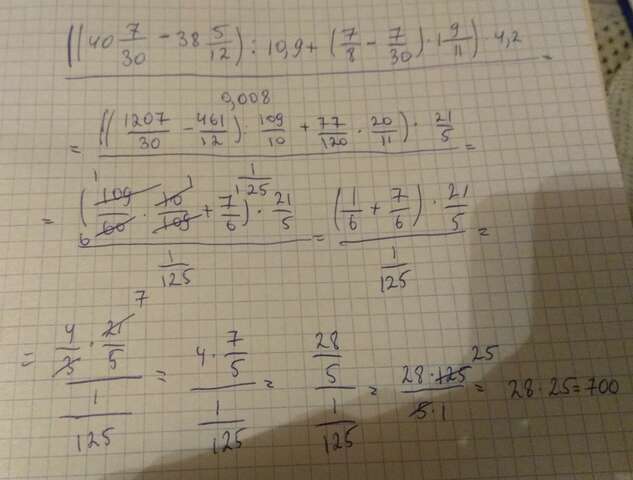 ((40 7/30 - 38 5/12) : 10,9 + (7/8 - 7/30) · 1 9/11) · 4,2 =
0,008
= ((1207/30 - 461/12) · 109/10 + 77/120 · 20/11) · 21/5 =
1/125
= (109/60 · 10/109 + 7/6) · 21/5 / 1/125 = (1/6 + 7/6) · 21/5 / 1/125 =
= 4/3 · 21/5 / 1/125 = 4 · 7/5 / 1/125 = 28/5 / 1/125 = 28 · 125/5 · 1 = 28 · 25 = 700